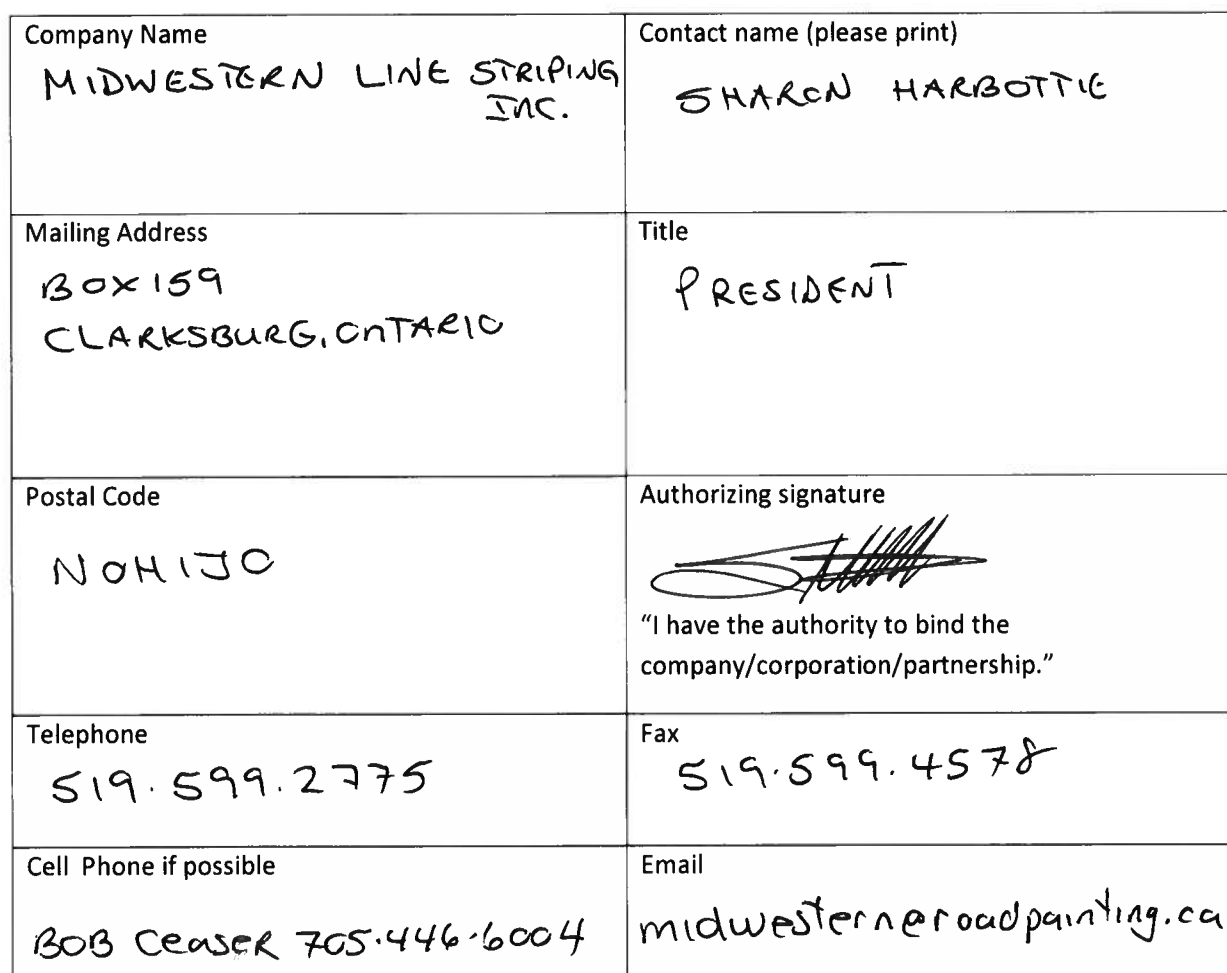 Company Name
MIDWESTERN LINE STRIPING
INC.
Contact name (please print)
SHARON HARBOTTLE
Mailing Address
BOX 159
CLARKSBURG, ONTARIO
Title
PRESIDENT
Postal Code
N0H1J0
Authorizing signature
“I have the authority to bind the
company/corporation/partnership.”
Telephone
519.599.2775
Fax
519.599.4578
Cell Phone if possible
BOB Ceaser 705.446.6004
Email
midwestern@roadpainting.ca